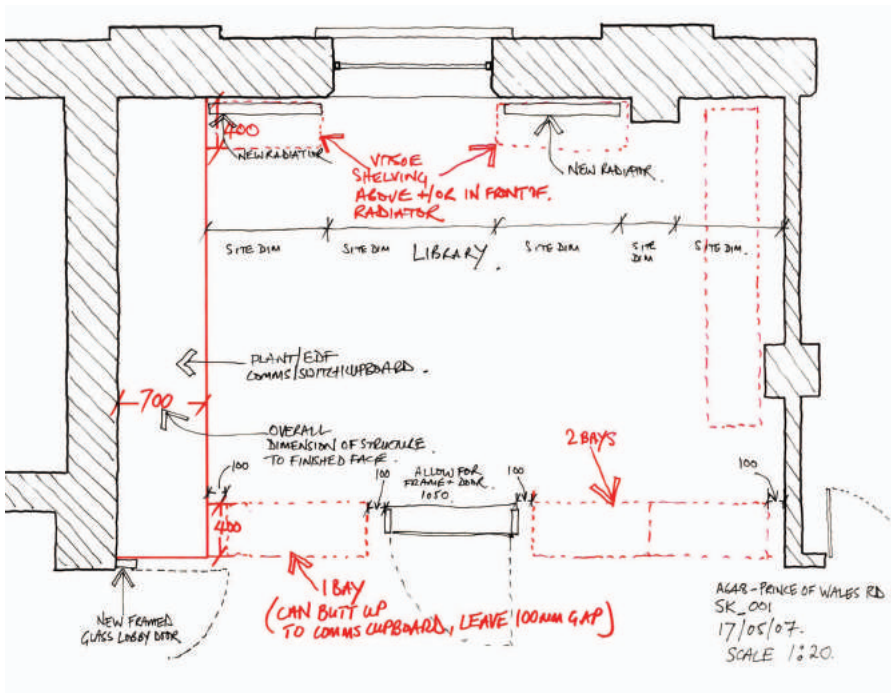 400
NEW RADIATIOR
VITSOE
SHELVING
ABOVE +/OR IN FRONT OF.
RADIATOR
NEW RADIATOR.
SITE DIM
SITE DIM
LIBRARY.
SITE DIM
SITE
DIM
SITE DIM.
PLANT/EDF
COMMS/SWITCH CUPBOARD.
700
OVERALL
DIMENSION OF STRUCTURE
TO FINISHED FACE.
2 BAYS
100
100
ALLOW FOR
FRAME + DOOR.
1050.
100
100
400
1 BAY
(CAN BUTT UP
TO COMMS CUPBOARD, LEAVE 100MM GAP)
NEW FRAMED
GLASS LOBBY DOOR
A6AB-PRINCE OF WALES RD
SK_001
17/05/07.
SCALE 1:20.